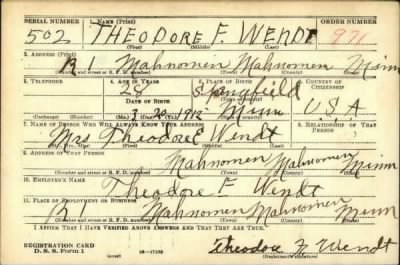 SERIAL NUMBER 1. NAME (Print) ORDER NUMBER
502 THEODORE F. WENDT 971
(First) (Middle) (Last)
2. ADDRESS (Print)
R 1 Mahnomen Mahnomen Minn
3. TELEPHONE 4. AGE IN YEARS 5. PLACE OF BIRTH 6. COUNTRY OF CITIZENSHIP
28 Springfield
DATE OF BIRTH Minn U.S.A
3 20 1912
(Exchange) (Number) (Mo.) (Day) (Yr.)
7. NAME OF PERSON WHO WILL ALWAYS KNOW YOUR ADDRESS 8. RELATIONSHIP OF THAT PERSON
Mrs Theodore Wendt
(Mr., Mrs., Miss) (First) (Middle) (Last)
9. ADDRESS OF THAT PERSON
Mahnomen Mahnomen Minn
(Number and street or R. F. D. number) (Town) (County) (State)
10. EMPLOYER'S NAME
Theodore F Wendt
11. PLACE OF EMPLOYMENT OR BUSINESS
R Mahnomen Mahnomen Minn
(Number and street or R. F. D. number) (Town) (County) (State)
I AFFIRM THAT I HAVE VERIFIED ABOVE ANSWERS AND THAT THEY ARE TRUE.
REGISTRATION CARD
D. S. S. Form 1 Theodore F Wendt